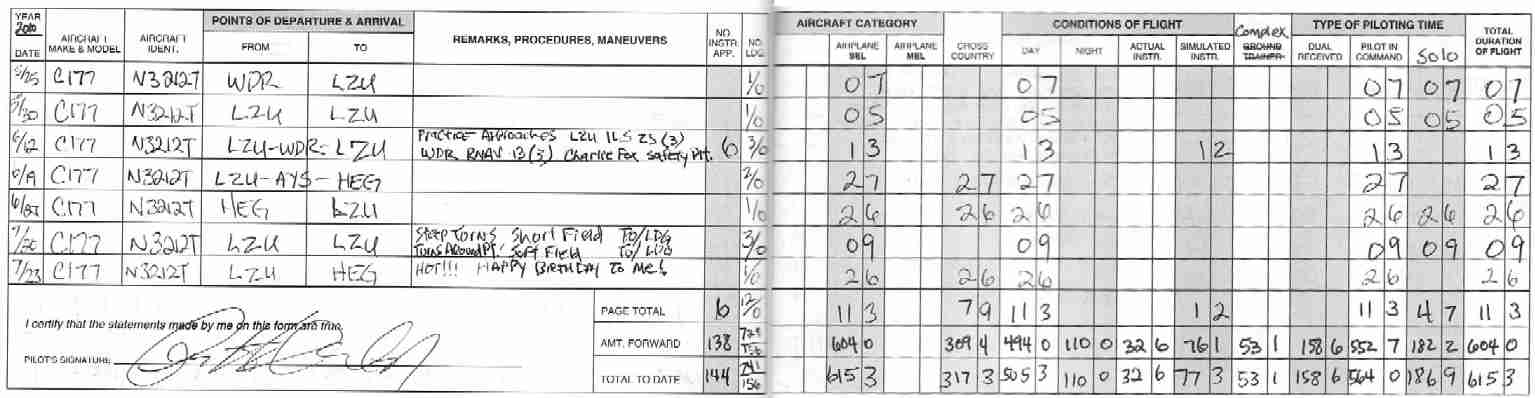 YEAR 2010 POINTS OF DEPARTURE & ARRIVAL AIRCRAFT CATEGORY CONDITIONS OF FLIGHT Complex TYPE OF PILOTING TIME
DATE AIRCRAFT MAKE & MODEL AIRCRAFT IDENT. FROM TO REMARKS, PROCEDURES, MANEUVERS NO. INSTR. APP. NO. LDG AIRPLANE SEL AIRPLANE MEL CROSS COUNTRY DAY NIGHT ACTUAL INSTR. SIMULATED INSTR. GROUND TRAINER DUAL RECEIVED PILOT IN COMMAND Solo TOTAL DURATION OF FLIGHT
5/25 C177 N3212T WDR LZU 1/0 0 7 0 7 0 7 0 7 0 7
5/30 C177 N3212T LZU LZU 1/0 0 5 0 5 0 5 0 5 0 5
6/12 C177 N3212T LZU-WDR-LZU PRACTICE APPROACHES LZU ILS 25 (3)
WDR RNAV 13 (3) Charlie Fox Safety Plt. 6 3/0 1 3 1 3 1 2 1 3 1 3
6/19 C177 N3212T LZU-AYS-HEG 2/0 2 7 2 7 2 7 2 7 2 7
C177 N3212T HEG LZU 1/0 2 6 2 6 2 6 2 6 2 6 2 6
7/20 C177 N3212T LZU LZU Steep Turns Short Field TO/LDG
Turns Around Pt. Soft Field TO/LDG 3/0 0 9 0 9 0 9 0 9 0 9
7/23 C177 N3212T LZU HEG HOT!!! HAPPY BIRTHDAY TO ME! 1/0 2 6 2 6 2 6 2 6 2 6
PAGE TOTAL 6 12/0 11 3 7 9 11 3 1 2 11 3 4 7 11 3
I certify that the statements made by me on this form are true.
AMT. FORWARD 138 729 156 604 0 309 4 494 0 110 0 32 6 76 1 53 1 158 6 552 7 182 2 604 0
PILOT'S SIGNATURE
TOTAL TO DATE 144 741 156 615 3 317 3 505 3 110 0 32 6 77 3 53 1 158 6 564 0 186 9 615 3